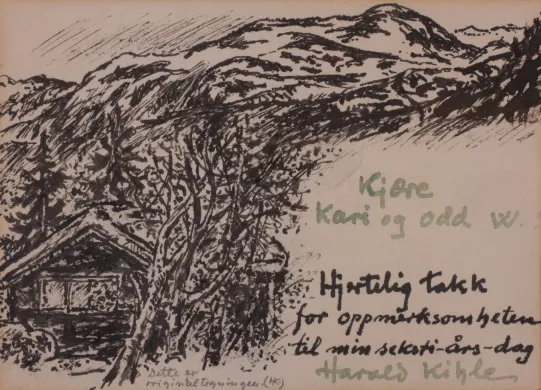 Kjære
Kari og Odd W.
Hjertelig takk
for oppmerksomheten
til min seksti-års-dag
Harald Kihle
Dette er
originaltegningen (HK)